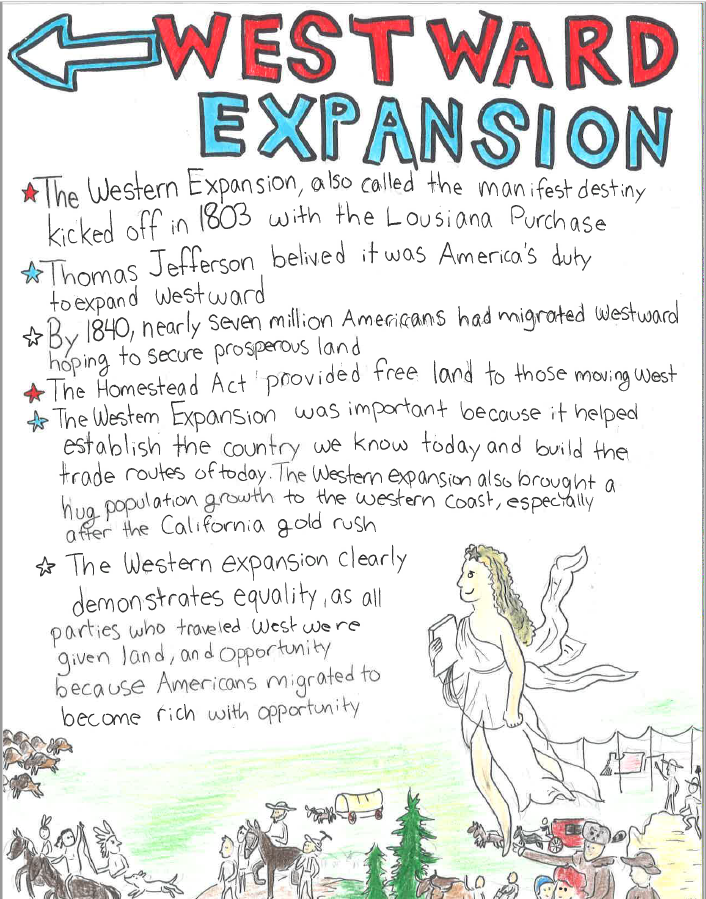 WESTWARD
EXPANSION
The Western Expansion, also called the manifest destiny
kicked off in 1803 with the Lousiana Purchase
Thomas Jefferson belived it was America's duty
to expand westward
By 1840, nearly seven million Americans had migrated westward
hoping to secure prosperous land
The Homestead Act provided free land to those moving west
The Western Expansion was important because it helped
establish the country we know today and build the
trade routes of today. The Western expansion also brought a
hug population growth to the western coast, especially
after the California gold rush
The Western expansion clearly
demonstrates equality, as all
parties who traveled West were
given land, and opportunity
because Americans migrated to
become rich with opportunity